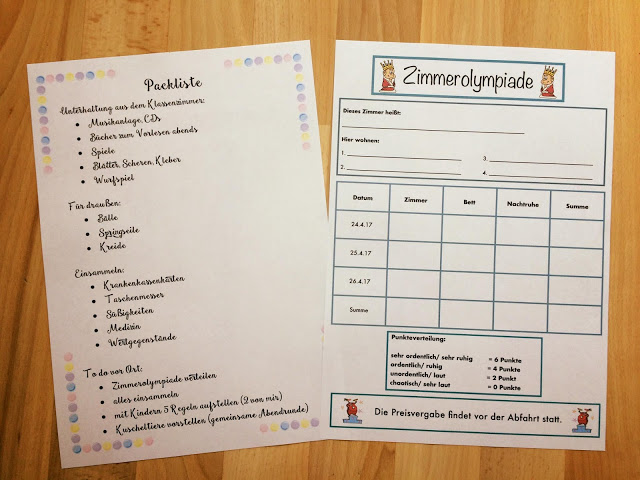 Packliste
Unterhaltung aus dem Klassenzimmer:
• Musikanlage, CDs
• Bücher zum Vorlesen abends
• Spiele
• Blätter, Scheren, Kleber
• Wurfspiel
Für draußen:
• Bälle
• Springseile
• Kreide
Einsammeln:
• Krankenkassenkarten
• Taschenmesser
• Süßigkeiten
• Medizin
• Wertgegenstände
To do vor Ort:
• Zimmerolympiade verteilen
• alles einsammeln
• mit Kindern 5 Regeln aufstellen (2 von mir)
• Kuscheltiere vorstellen (gemeinsame Abendrunde)
Zimmerolympiade
Dieses Zimmer heißt:
Hier wohnen:
1. 3.
2. 4.
Datum Zimmer Bett Nachtruhe Summe
24.4.17
25.4.17
26.4.17
Summe
Punkteverteilung:
sehr ordentlich/ sehr ruhig = 6 Punkte
ordentlich/ ruhig = 4 Punkte
unordentlich/ laut = 2 Punkt
chaotisch/ sehr laut = 0 Punkte
Die Preisvergabe findet vor der Abfahrt statt.